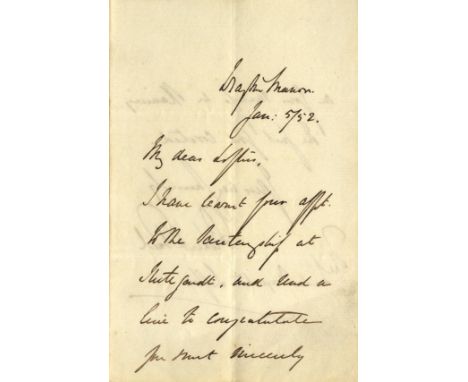 Drayton Manor
Jan: 5/52.
My dear Loftus,
I have learnt your appt.
to the Secretaryship at
Stutgardt, and send a
line to congratulate
you most sincerely